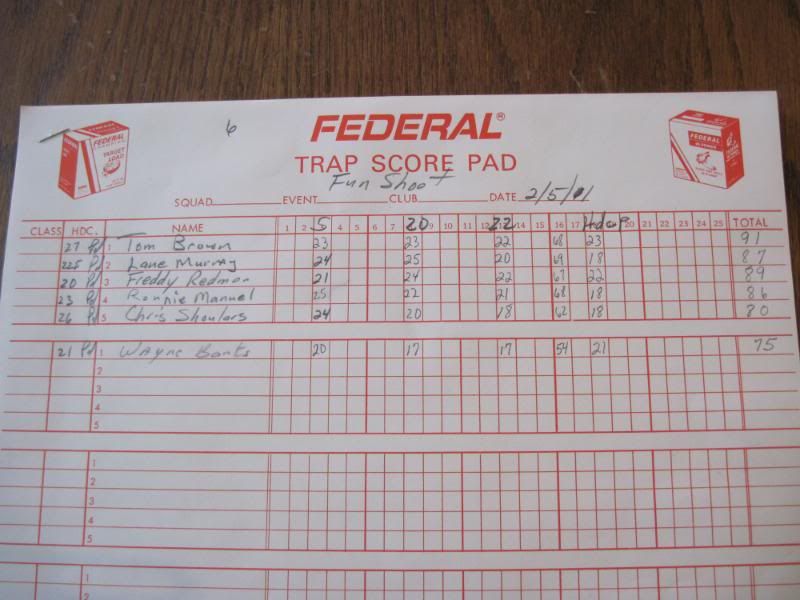 6
FEDERAL®
TRAP SCORE PAD
FEDERAL
TARGET LOAD
FEDERAL
Fun Shoot
SQUAD EVENT CLUB DATE 2/5/01
5 20 22 Hdcp
CLASS HDC. NAME 1 2 4 5 6 7 9 10 11 12 14 15 16 17 20 21 22 23 24 25 TOTAL
27 Pd 1 Tom Brown 23 23 22 68 23 91
225 Pd 2 Lane Murray 24 25 20 69 18 87
20 Pd 3 Freddy Redmon 21 24 22 67 22 89
23 Pd 4 Ronnie Manuel 25 22 21 68 18 86
26 Pd 5 Chris Shoulars 24 20 18 62 18 80
21 Pd 1 Wayne Banks 20 17 17 54 21 75
2
3
4
5
1
2
3
4
5
1
2